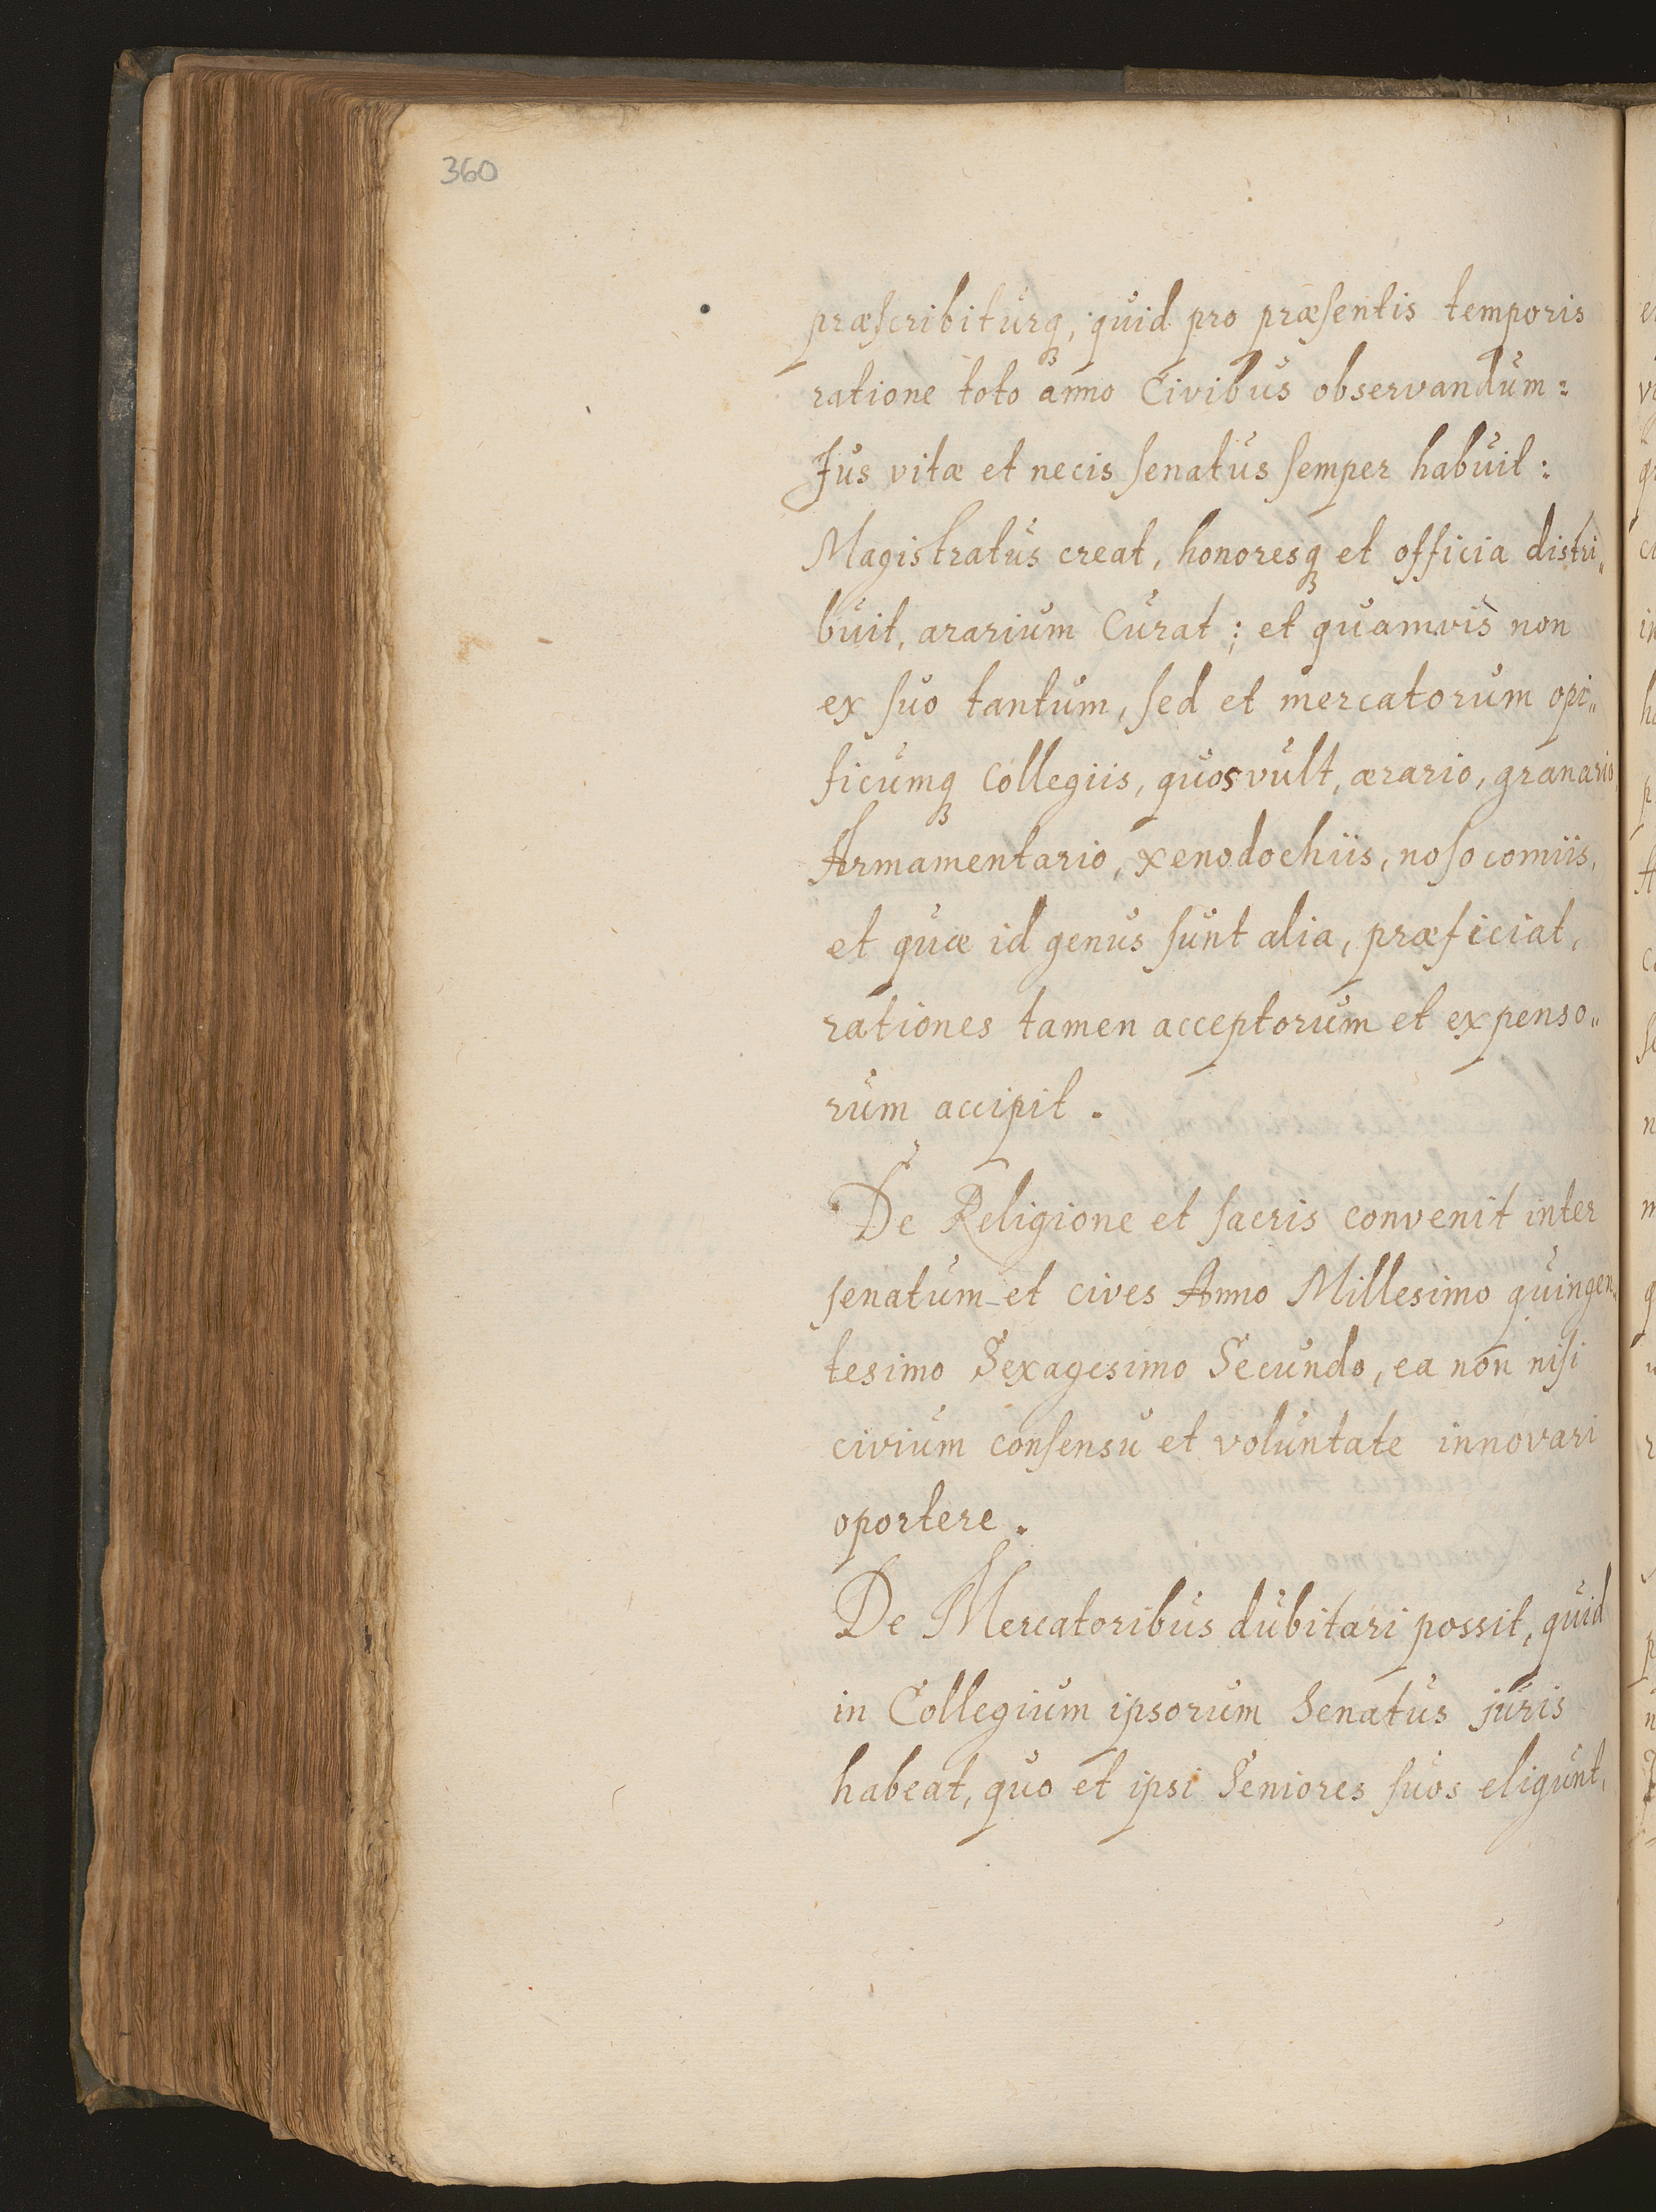 360
præscribiturq₃, quid pro præsentis temporis
ratione toto anno Civibus observandum:
Jus vitæ et necis senatus semper habuit:
Magistratus creat, honoresq₃ et officia distri„
buit, ararium Curat; et quamvis non
ex suo tantum, sed et mercatorum opi„
ficumq₃ Collegiis, quos vult, ærario, granario,
Armamentario, xenodochiis, nosocomiis,
et quæ id genus sunt alia, præficiat,
rationes tamen acceptorum et expenso„
rum accipit.
De Religione et sacris convenit inter
senatum et cives Anno Millesimo quingen„
tesimo Sexagesimo Secundo, ea non nisi
civium consensu et voluntate innovari
oportere.
De Mercatoribus dubitari possit, quid
in Collegium ipsorum Senatus juris
habeat, quo et ipsi Seniores suos eligunt,